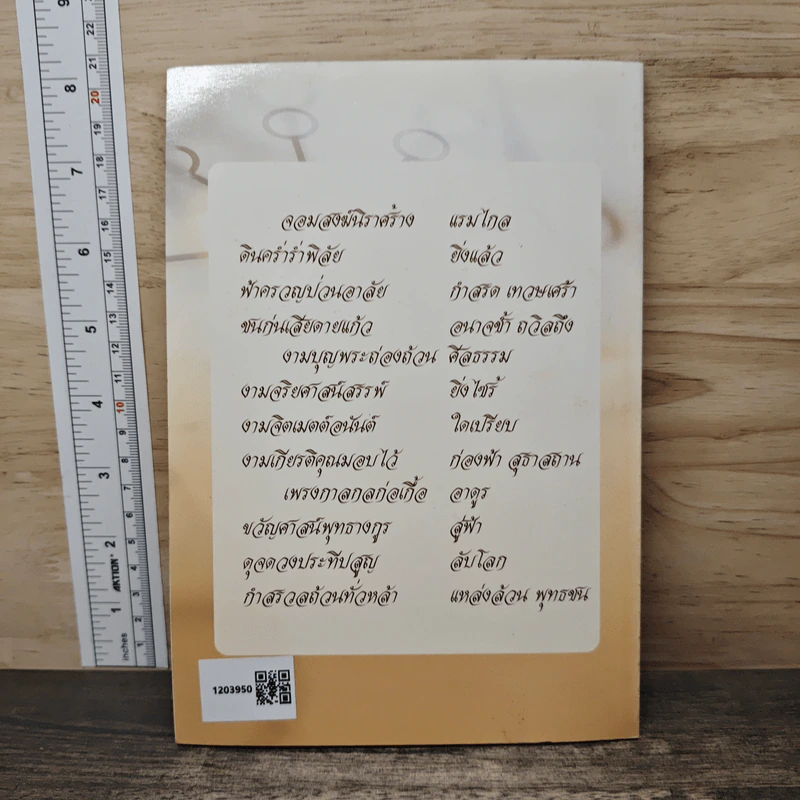 จอมสงฆ์นิราศร้าง แรมไกล
ดินคร่ำร่ำพิลัย ยิ่งแล้ว
ฟ้าครวญป่วนอาลัย กำสรด เทวษเศร้า
ชนก่นเสียดายแก้ว อนาจช้ำ ถวิลถึง
งามบุญพระถ่องถ้วน ศีลธรรม
งามจริยศาสน์สรรพ์ ยิ่งไซร้
งามจิตเมตต์อนันต์ ใดเปรียบ
งามเกียรติคุณมอบไว้ ก่องฟ้า สุธาสถาน
เพรงกาลกลก่อเกื้อ อาดูร
ขวัญศาสน์พุทธางกูร สู่ฟ้า
ดุจดวงประทีปสูญ ลับโลก
กำสรวลถ้วนทั่วหล้า แหล่งล้วน พุทธชน
1203950
inches 1 2 3 4 5 6 7 8 9
AKTION
1 2 3 4 5 6 7 8 9 10 11 12 13 14 15 16 17 18 19 20 21 22